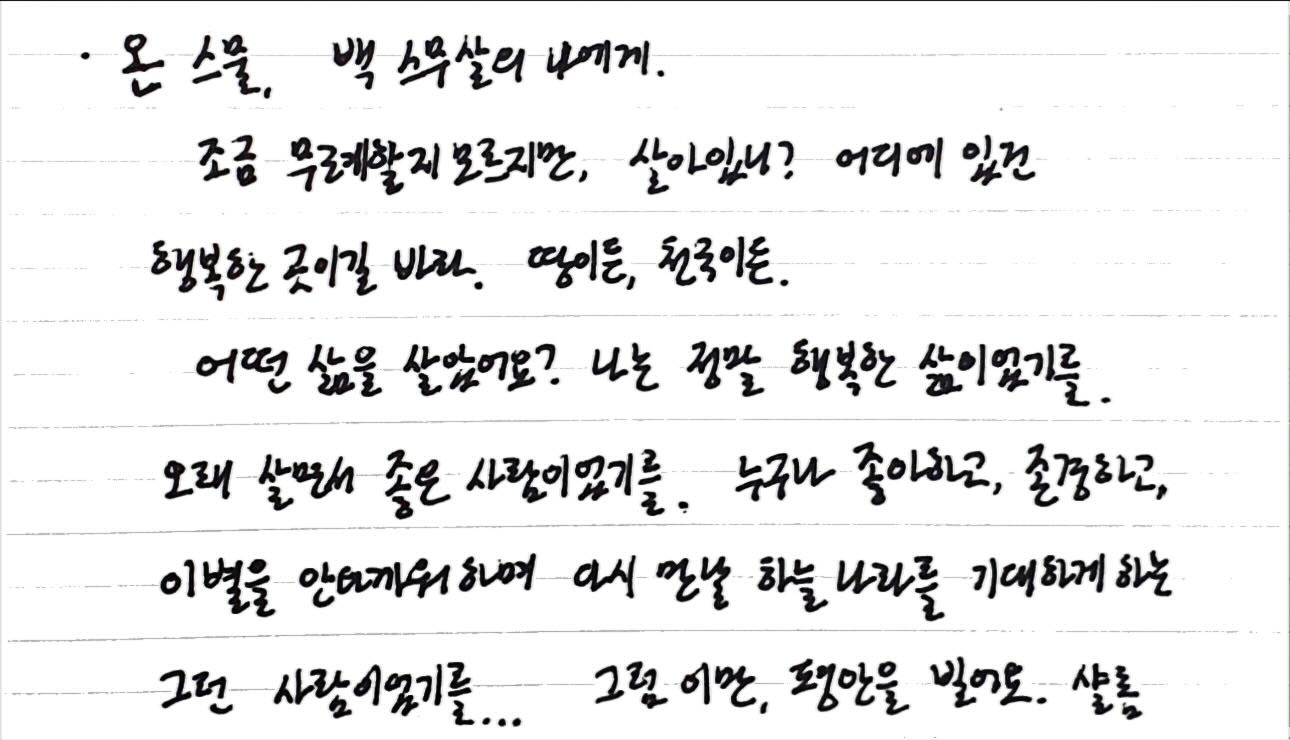 · 온 스물, 백 스무살의 나에게.
조금 무르게할지 모르지만, 살아있니? 어디에 있건
행복한 곳이길 바라. 땅이든, 천국이든.
어떤 삶을 살았어요? 나는 정말 행복한 삶이었기를.
오래 살면서 좋은 사람이었기를. 누구나 좋아하고, 존경하고,
이별을 안타까워하며 다시 만날 하늘 나라를 기대하게 하는
그런 사람이었기를... 그럼 이만, 평안을 빌어요. 샬롬